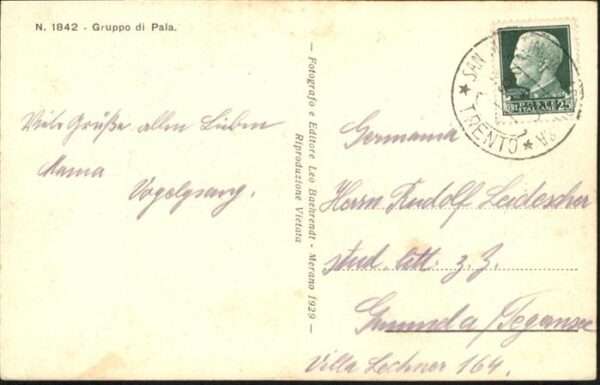 N. 1842 - Gruppo di Pala.
Viele Grüße allen Lieben
Mama Vogelgsang.
— Fotografo e Editore Leo Baehrendt - Merano 1929 —
Riproduzione Vietata
SAN MARTINO
TRENTO
POSTE ITALIANE
25
Germania
Herrn Rudolf Leidescher
stud. z. Z.
Gmund a/Tegernsee
Villa Lechner 164.